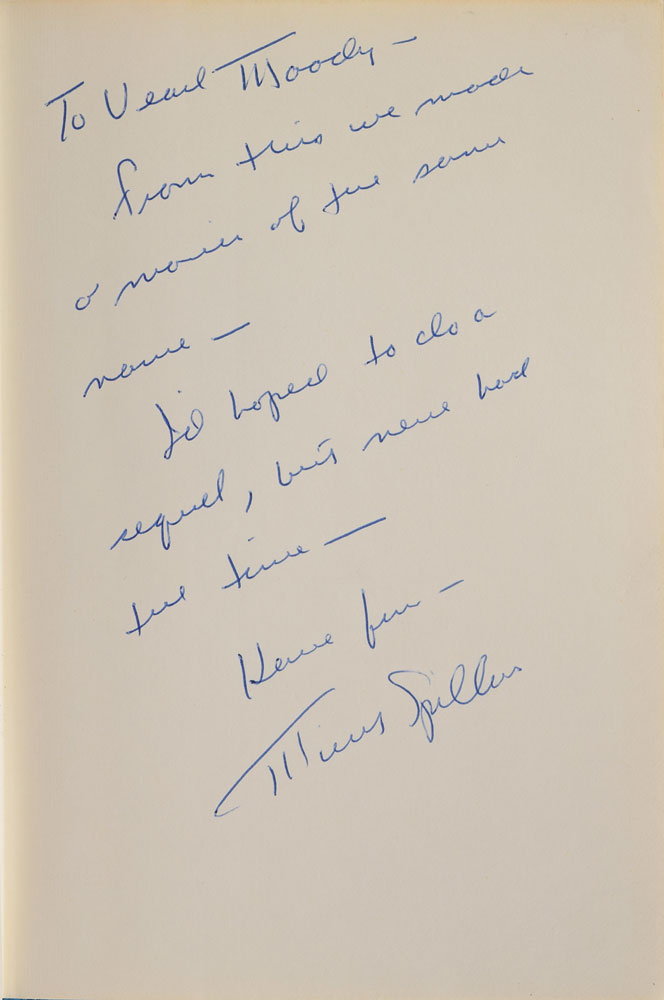 To Vearl Moody —
from this we made
a movie of the same
name —
I'd hoped to do a
sequel, but never had
the time —
Have fun —
Mickey Spillane